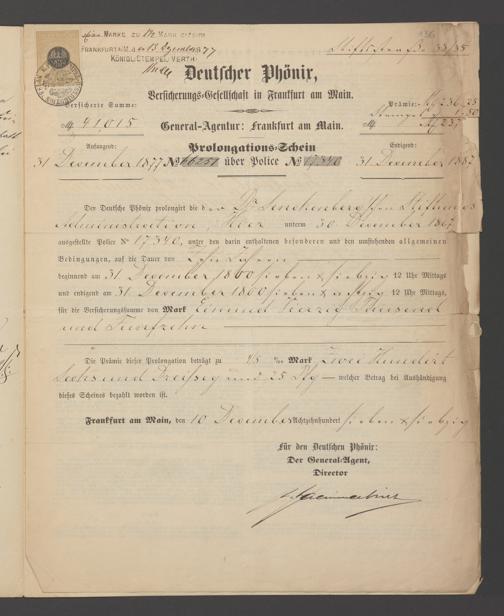 MARKE ZU MARK
FRANKFURT A/M. d. 13 Dezember 77
KÖNIGL. STEMPEL VERTH.
Stiftstrasse 33/35
136
Deutscher Phönix,
Versicherungs-Gesellschaft in Frankfurt am Main.
Versicherte Summe:
M 41015
General-Agentur: Frankfurt am Main.
Prämie: M 236.25
Stempel
M 237
Prolongations-Schein
Anfangend:
31 December 1877
No 66251 über Police No 17,340
Endigend:
31 December 1887
Der Deutsche Phönix prolongirt die der Dr. Senckenbergischen Stiftungs
Administration, Hier unterm 30 December 1867
ausgestellte Police No 17,340, unter den darin enthaltenen besonderen und den umstehenden allgemeinen
Bedingungen, auf die Dauer von Zehn Jahren,
beginnend am 31 December 1860 sieben & siebzig 12 Uhr Mittags
und endigend am 31 December 1860 sieben & achtzig 12 Uhr Mittags,
für die Versicherungssumme von Mark Einund Vierzig Tausend
und Fünfzehn
Die Prämie dieser Prolongation beträgt zu Mark Zwei Hundert
Sechs und Dreißig und 25 Pfg — welcher Betrag bei Aushändigung
dieses Scheines bezahlt worden ist.
Frankfurt am Main, den 10 December Achtzehnhundert sieben & siebzig
Für den Deutschen Phönix:
Der General-Agent,
Director